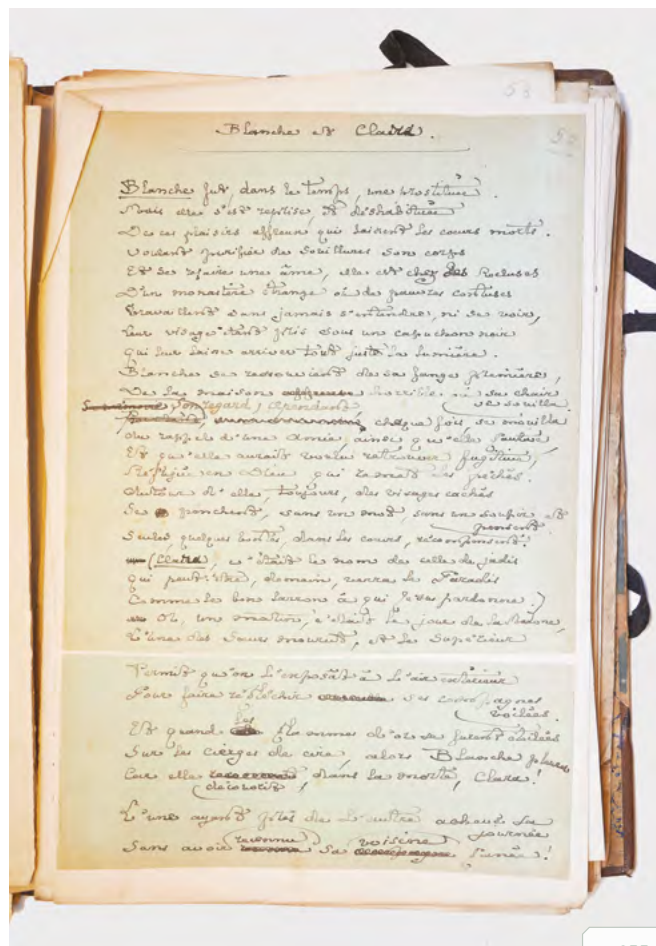 53
52
Blanche et Claire.
Blanche fut, dans le temps, une prostituée.
Mais elle s'est reprise, et déshabituée
De ces plaisirs affreux qui laissent les cœurs morts.
Voulant purifier de souillures son corps
Et se refaire une âme, elle est chez des Recluses
D'un monastère étrange où de pauvres confuses
Travaillent sans jamais s'entendre, ni se voir,
Leur visage étant pris sous un capuchon noir
Qui leur laisse arriver tout juste la lumière.
Blanche se ressouvient de sa fange première,
De la maison horrible où sa chair
se souilla.
Son regard, cependant,
chaque fois, se mouilla
Au rappel d'une Amie, ainsi qu'elle
Et qu'elle aurait voulu retrouver fugitive,
en Dieu qui remet les péchés.
Autour d'elle, toujours, des visages cachés
Se penchent, sans un mot, sans un soupir et
pensent.
Seules, quelques bontés, dans les cœurs, récompensent!
(Claire, c'était le nom de celle de jadis
Qui peut-être, demain, verra le Paradis
Comme le bon larron à qui Jésus pardonne.)
Or, un matin, c'était le jour de la
L'une des Sœurs mourut, et le Supérieur
Permit qu'on l'exposât à l'air extérieur
Pour faire réfléchir ses compagnes
voilées.
Et quand les flammes d'or se furent
Sur les cierges de cire, alors Blanche pleura
Car elle dans la morte, Clara!
L'une ayant près de l'autre achevé sa
journée
Sans avoir reconnu sa voisine